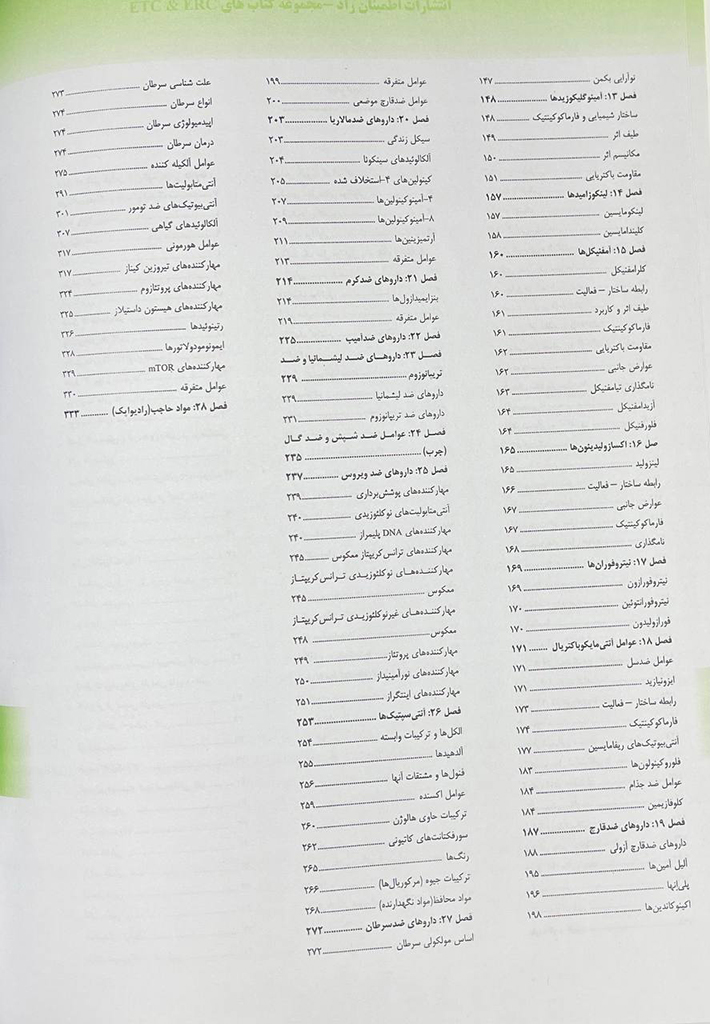 انتشارات اطمینان راد - مجموعه کتاب های ETC & ERC
نوآرایی بکمن ۱۴۷
فصل ۱۳: آمینوگلیکوزیدها ۱۴۸
ساختار شیمیایی و فارماکوکینتیک ۱۴۸
طیف اثر ۱۴۹
مکانیسم اثر ۱۵۰
مقاومت باکتریایی ۱۵۱
فصل ۱۴: لینکوزامیدها ۱۵۷
لینکومایسین ۱۵۷
کلیندامایسین ۱۵۸
فصل ۱۵: آمفنیکل‌ها ۱۶۰
کلرامفنیکل ۱۶۰
رابطه ساختار – فعالیت ۱۶۰
طیف اثر و کاربرد ۱۶۱
فارماکوکینتیک ۱۶۱
مقاومت باکتریایی ۱۶۲
عوارض جانبی ۱۶۲
نامگذاری تیامفنیکل ۱۶۳
آزیدامفنیکل ۱۶۴
فلورفنیکل ۱۶۴
صل ۱۶: اکسازولیدینون‌ها ۱۶۵
لینزولید ۱۶۵
رابطه ساختار – فعالیت ۱۶۶
عوارض جانبی ۱۶۷
فارماکوکینتیک ۱۶۷
نامگذاری ۱۶۸
فصل ۱۷: نیتروفوران‌ها ۱۶۹
نیتروفورازون ۱۶۹
نیتروفورانتوئین ۱۷۰
فورازولیدون ۱۷۰
فصل ۱۸: عوامل آنتی‌مایکوباکتریال ۱۷۱
عوامل ضدسل ۱۷۱
ایزونیازید ۱۷۱
رابطه ساختار – فعالیت ۱۷۳
فارماکوکینتیک ۱۷۴
آنتی‌بیوتیک‌های ریفامایسین ۱۷۷
فلوروکینولون‌ها ۱۸۳
عوامل ضد جذام ۱۸۴
کلوفازیمین ۱۸۴
فصل ۱۹: داروهای ضدقارچ ۱۸۷
داروهای ضدقارچ آزولی ۱۸۸
آلیل آمین‌ها ۱۹۵
پلی‌اِنها ۱۹۶
اکینوکاندین‌ها ۱۹۸
عوامل متفرقه ۱۹۹
عوامل ضدقارچ موضعی ۲۰۰
فصل ۲۰: داروهای ضدمالاریا ۲۰۳
سیکل زندگی ۲۰۳
آلکالوئیدهای سینکونا ۲۰۴
کینولین‌های ۴-استخلاف شده ۲۰۵
۴-آمینوکینولین‌ها ۲۰۷
۸-آمینوکینولین‌ها ۲۰۹
آرتمیزینین‌ها ۲۱۱
عوامل متفرقه ۲۱۳
فصل ۲۱: داروهای ضدکرم ۲۱۴
بنزایمیدازول‌ها ۲۱۴
عوامل متفرقه ۲۱۹
فصل ۲۲: داروهای ضدآمیب ۲۲۵
فصل ۲۳: داروهای ضد لیشمانیا و ضد
تریپانوزوم ۲۲۹
داروهای ضد لیشمانیا ۲۲۹
داروهای ضد تریپانوزوم ۲۳۱
فصل ۲۴: عوامل ضد شپش و ضد گال
(جرب) ۲۳۵
فصل ۲۵: داروهای ضد ویروس ۲۳۷
مهارکننده‌های پوشش‌برداری ۲۳۹
آنتی‌متابولیت‌های نوکلئوزیدی ۲۴۰
مهارکننده‌های DNA پلیمراز ۲۴۰
مهارکننده‌های ترانس‌کریپتاز معکوس ۲۴۵
مهارکننده‌های نوکلئوزیدی ترانس‌کریپتاز
معکوس ۲۴۵
مهارکننده‌های غیرنوکلئوزیدی ترانس‌کریپتاز
معکوس ۲۴۸
مهارکننده‌های پروتئاز ۲۴۹
مهارکننده‌های نورآمینیداز ۲۵۰
مهارکننده‌های اینتگراز ۲۵۱
فصل ۲۶: آنتی‌سپتیک‌ها ۲۵۳
الکل‌ها و ترکیبات وابسته ۲۵۴
آلدهیدها ۲۵۵
فنول‌ها و مشتقات آنها ۲۵۶
عوامل اکسنده ۲۵۹
ترکیبات حاوی هالوژن ۲۶۰
سورفکتانت‌های کاتیونی ۲۶۲
رنگ‌ها ۲۶۵
ترکیبات جیوه (مرکوریال‌ها) ۲۶۶
مواد محافظ(مواد نگهدارنده) ۲۶۸
فصل ۲۷: داروهای ضدسرطان ۲۷۲
اساس مولکولی سرطان ۲۷۲
علت شناسی سرطان ۲۷۳
انواع سرطان ۲۷۴
اپیدمیولوژی سرطان ۲۷۴
درمان سرطان ۲۷۴
عوامل آلکیله کننده ۲۷۵
آنتی‌متابولیت‌ها ۲۹۱
آنتی‌بیوتیک‌های ضد تومور ۳۰۱
آلکالوئیدهای گیاهی ۳۰۷
عوامل هورمونی ۳۱۷
مهارکننده‌های تیروزین کیناز ۳۱۷
مهارکننده‌های پروتئازوم ۳۲۴
مهارکننده‌های هیستون داستیلاز ۳۲۵
رتینوئیدها ۳۲۶
ایمونومودولاتورها ۳۲۸
مهارکننده‌های mTOR ۳۲۹
عوامل متفرقه ۳۳۰
فصل ۲۸: مواد حاجب(رادیوپک) ۳۳۳